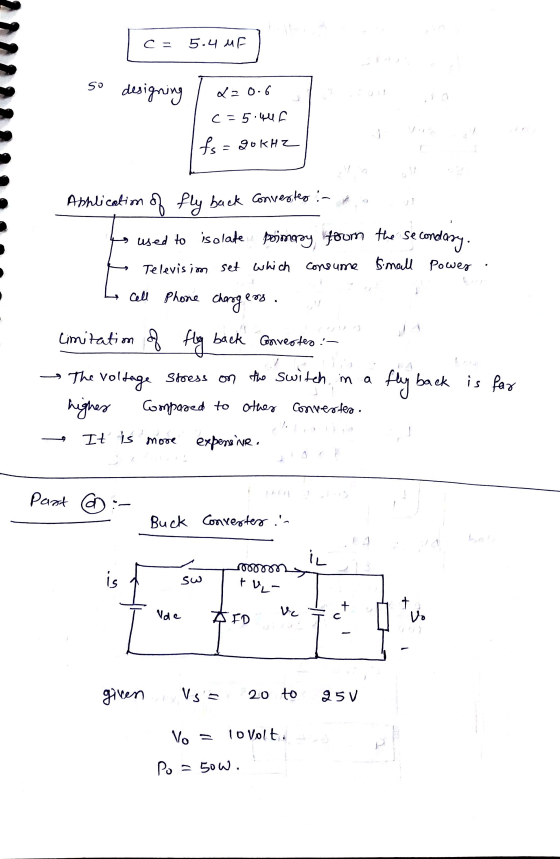 C = 5.4 µF
so designing
α = 0.6
C = 5.4µF
fs = 20KHZ
Application of fly back Converter :-
→ used to isolate primary from the secondary.
→ Television set which consume small Power.
→ Cell Phone chargers.
Limitation of fly back Converter :-
→ The Voltage stress on the switch in a fly back is far
higher Compared to other converter.
→ It is more expensive.
Part (a) :-
Buck Converter :-
is
SW
+ VL -
iL
Vdc
FD
Vc
C
+
-
+
Vo
-
given Vs = 20 to 25V
Vo = 10 Volt.
Po = 50W.